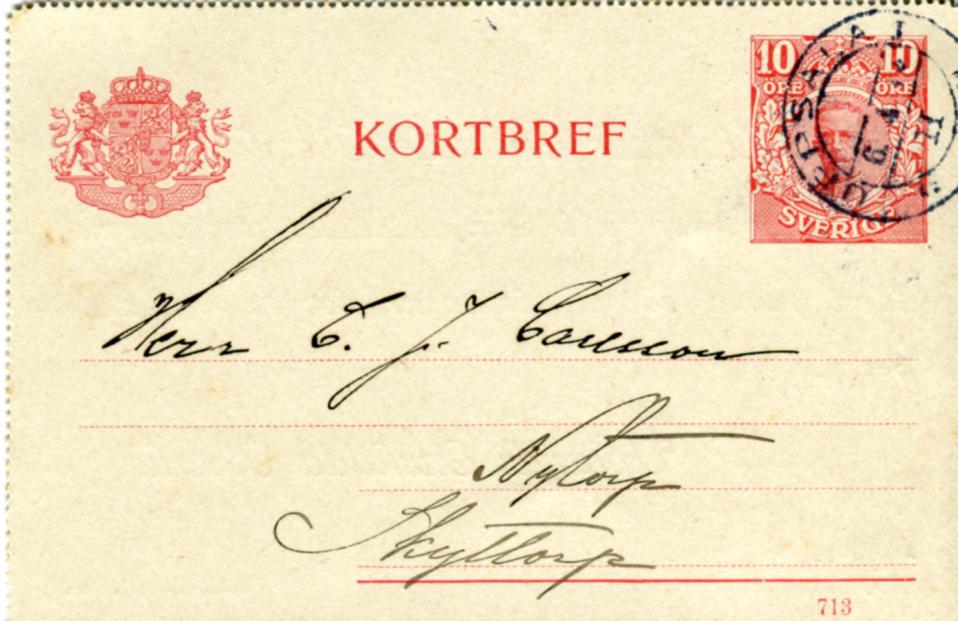 KORTBREF
10 10
ÖRE ÖRE
SVERIGE
UPSALA
Herr C. J. Carlsson
Nytorp
Skyttorp
713